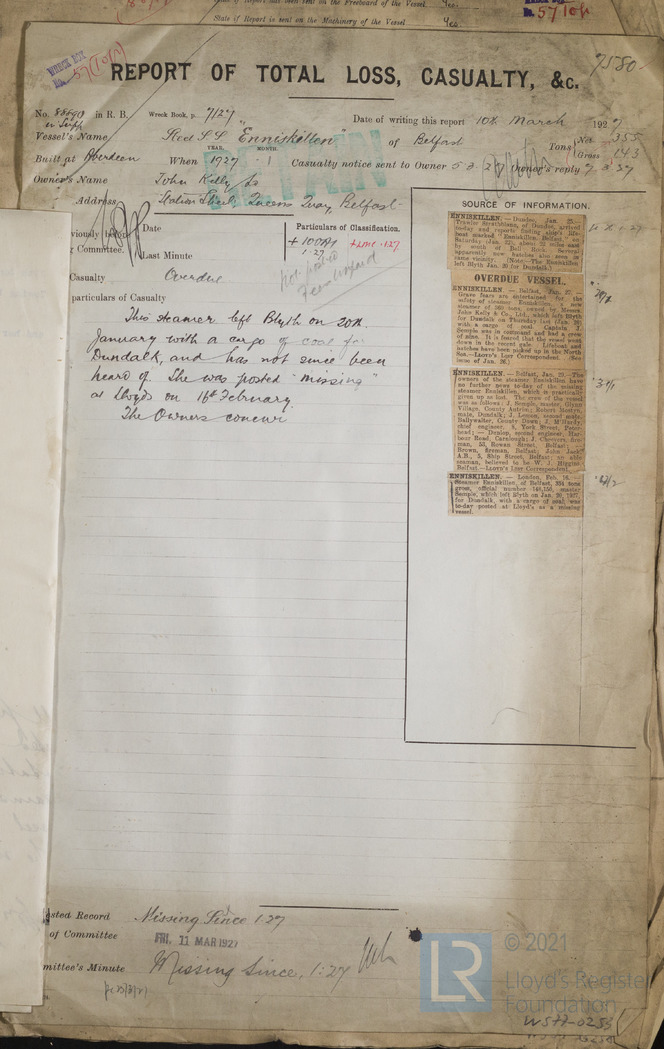 State if Report is sent on the Machinery of the Vessel Yes.
WRECK BOX
57/10/1
7580
REPORT OF TOTAL LOSS, CASUALTY, &c.
No. in R. B. Wreck Book, p. 7127
Date of writing this report 10th March 1927
Vessel's Name Steel S.S. "Enniskillen" of Belfast
Tons Net
Gross
YEAR. MONTH.
Built at Aberdeen When 1927 1 Casualty notice sent to Owner 5.3.27 Owner's reply 7.3.27
RETAIN
Owner's Name John Kelly Ld
Address Station Street, Queens Quay, Belfast
Date
Committee.
Last Minute
Particulars of Classification.
+100A1
1.27
+LMC 1.27
not posted
Casualty Overdue
particulars of Casualty
This steamer left Blyth on 20th
January with a cargo of coal for
Dundalk, and has not since been
heard of. She was posted "missing"
at Lloyds on 16th February.
The Owners concur
SOURCE OF INFORMATION.
ENNISKILLEN. — Dundee, Jan. 25.—
Trawler Strathblane, of Dundee, arrived
today and reports finding ship's life-
boat marked "Enniskillen, Belfast," on
Saturday
south of Bell Rock. Several
apparently new hatches also seen in
same vicinity. (Note.—The Enniskillen
left Blyth Jan. 20 for Dundalk.)
OVERDUE VESSEL.
ENNISKILLEN. — Belfast, Jan. 27.—
Grave fears are entertained for the
safety of steamer Enniskillen, a new
steamer of tons, owned by Messrs.
John Kelly & Co., Ltd., which left Blyth
for Dundalk on Thursday last (Jan. 20)
with a cargo of coal. Captain J.
Semple was in command and had a crew
of nine. It is feared that the vessel went
down in the recent gale. Lifeboat and
hatches have been picked up in the North
Sea.—Lloyd's Loss Correspondent. (See
issue of Jan. 26.)
ENNISKILLEN. — Belfast, Jan. 29.—The
owners of the steamer Enniskillen have
no further news to-day of the missing
steamer Enniskillen, which is practically
given up as lost. The crew of the vessel
was as follows: J. Semple, master, Glynn
Village, County Antrim; Robert Mostyn,
mate, Dundalk; J. Lemon, second mate,
Ballywalter, County Down; J. M'Hardy,
chief engineer, 8, York Street, Peter-
head; — Dunlop, second engineer, Har-
bour Road, Carnlough; J. Chesvers, fire-
man, 53, Rowan Street, Belfast; —
Brown, fireman, Belfast; John Jack,
A.B., 5, Ship Street, Belfast; an able
seaman, believed to be W. J. Higgins,
Belfast.—Lloyd's Loss Correspondent.
ENNISKILLEN. — London, Feb. 16.—
Steamer Enniskillen, of Belfast, tons
gross, official number master
Semple, which left Blyth on Jan. 20, 1927,
for Dundalk, with a cargo of coal, was
to-day posted at Lloyd's as a missing
vessel.
Record Missing Since 1.27
of Committee FRI. 11 MAR 1927
mittee's Minute Missing Since, 1:27
LR
© 2021
Lloyd's Register
Foundation
WS77-0253